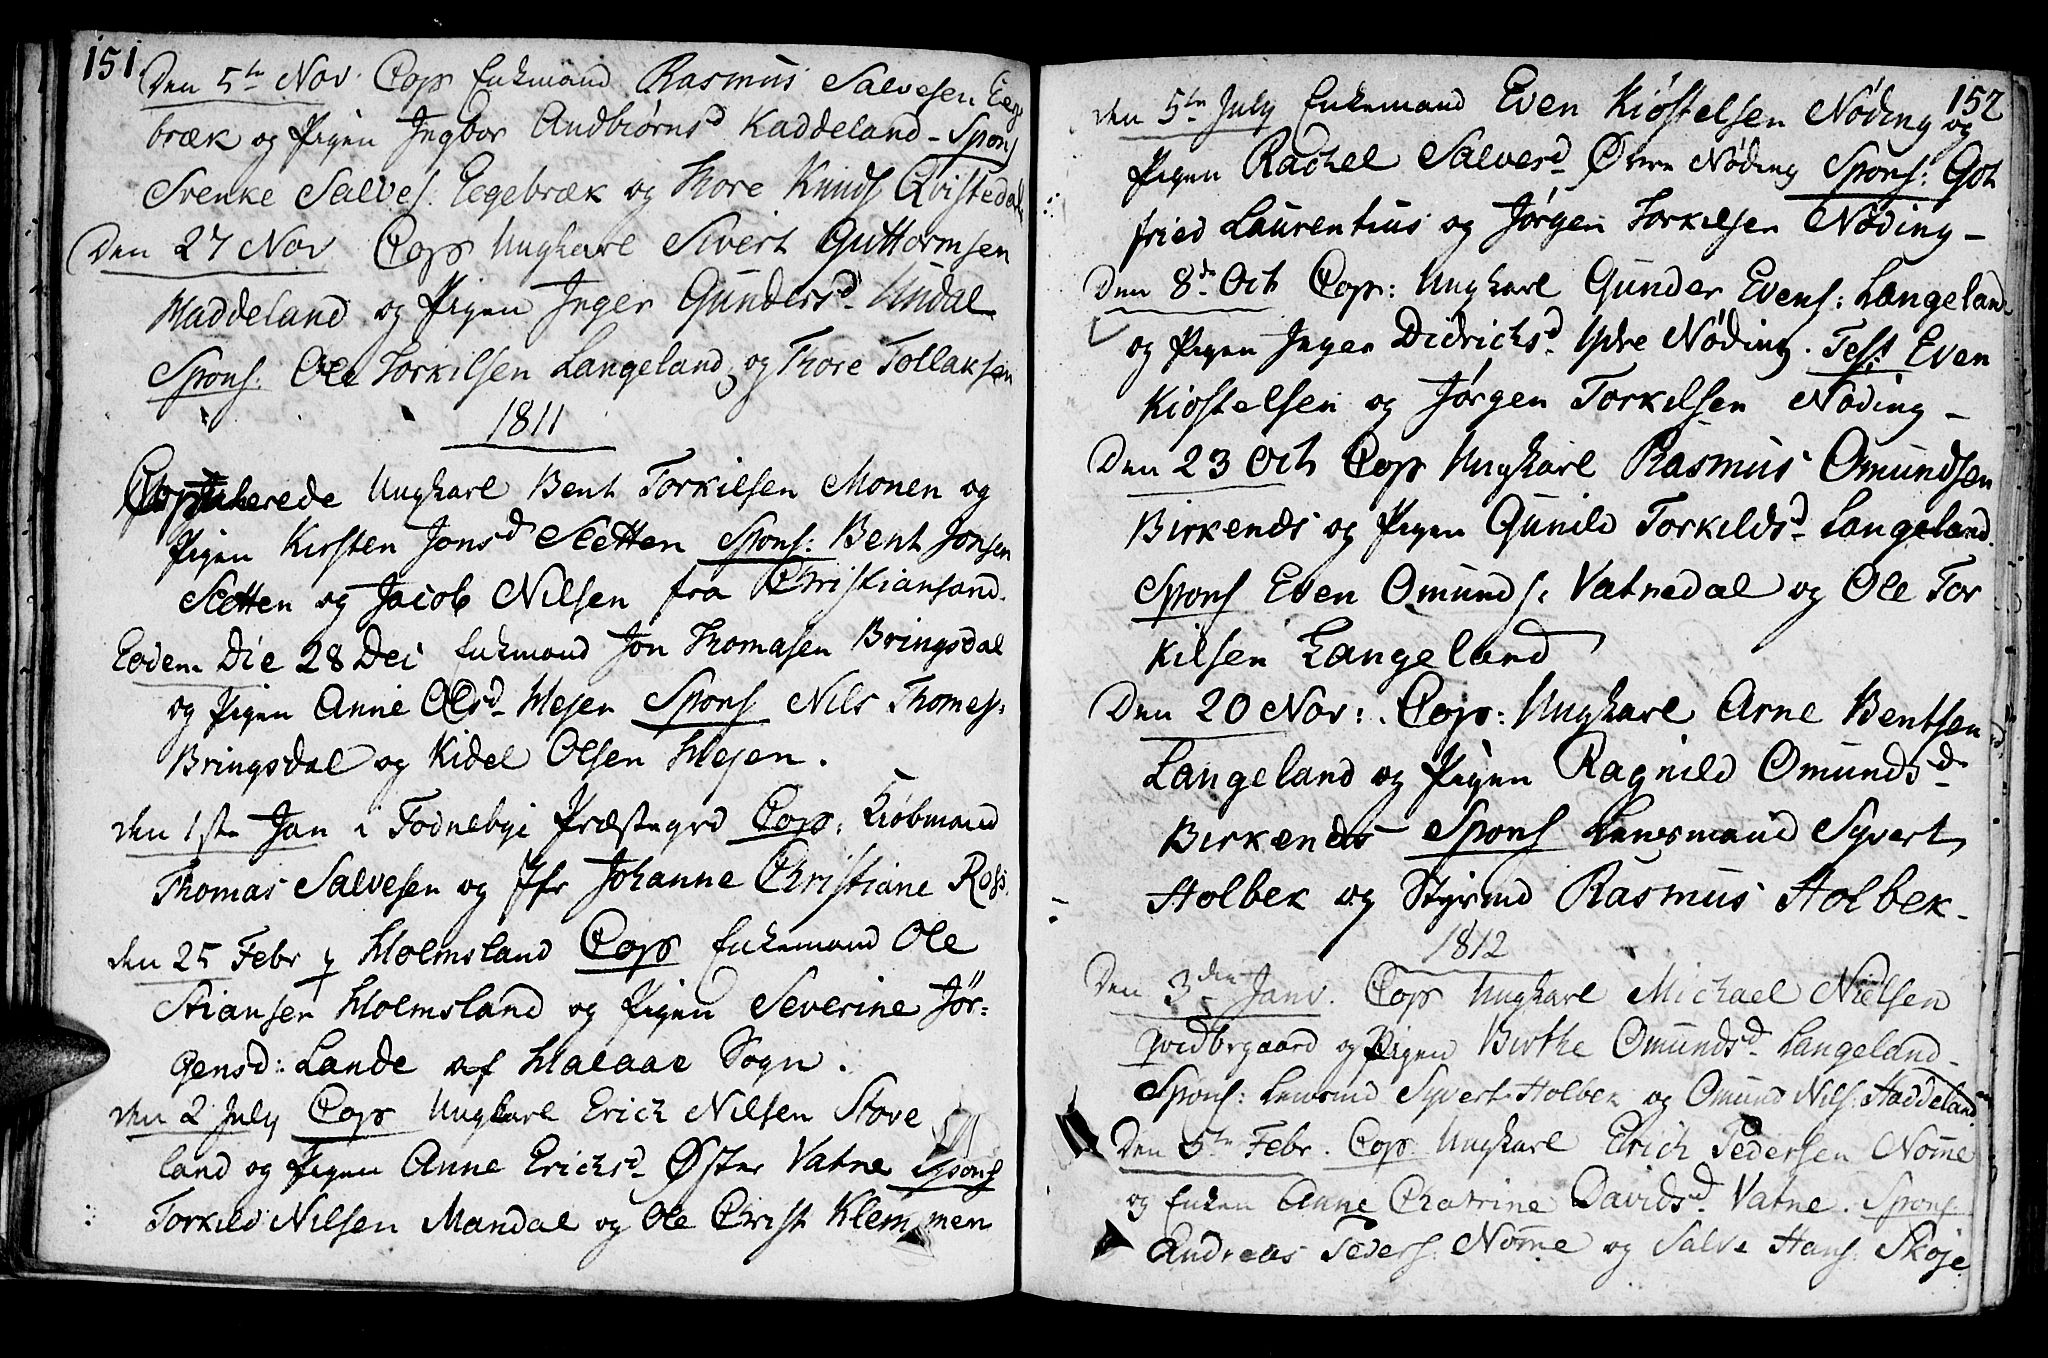 151.
Den 5te Nov. Cop Enkmand Rasmus Salvesen Eege
bræk og Pigen Ingbor Audbiørnsd Kaddeland - Spons
Svenke Salves. Eegebræk og Thore Knuds Qvistedal
Den 27 Nov Cop Ungkarl Sivert Guttormsen
Haddeland og Pigen Inger Gundersd. Undal
Spons. Ole Torkilsen Langeland, og Thore Tollaksen
1811
Copulerede Ungkarl Bent Torkilsen Monen og
Pigen Kirsten Jonsd Sletten Spons: Bent Jonsen
Sletten og Jacob Nilsen fra Christiansand.
Eodem Die 28 Dei Enkmand Jon Thomasen Bringsdal
og Pigen Anne Olsd. Hesen Spons Nils Thomes:
Bringsdal og Kidel Olsen Hesen.
den 1ste Jan i Præstegrd Cop: Kiøbmand
Thomas Salvesen og Jfr Johanne Christiane Ross.
den 25 Febr p Holmsland Cop Enkemand Ole
Stiansen Holmsland og Pigen Severine Jør-
gensd: Lande af Halaae Sogn.
den 2 July Cop Ungkarl Erich Nilsen Stove
land og Pigen Anne Erichsd. Øster Vatne Spons
Torkild Nilsen Mandal og Ole Christ Klemmen
152
den 5te July Enkemand Even Kiøstelsen Nøding og
Pigen Rachel Salvesd. Øvre Nøding Spons: Got
fried Laurentius og Jørgen Torkilsen Nøding -
Den 8de Oct Cop: Ungkarl Gunder Evens: Langeland.
og Pigen Inger Didrichsd. Ydre Nøding. Test Even
Kiøstelsen og Jørgen Torkilsen Nøding -
Den 23 Oct Cop Ungkarl Rasmus Omundsen
Birkenes og Pigen Gunild Torkildsd. Langeland.
Spons Even Omunds: Vatnedal og Ole Tor
kilsen Langeland
Den 20 Nov: Cop: Ungkarl Arne Bentsen
Langeland og Pigen Ragnild Omundsd.
Birkenes Spons Lensmand Syvert
Holbek og Styrmd Rasmus Holbek -
1812
Den 3den Janv. Cop Ungkarl Michael Nielsen
og Pigen Birthe Omundsd. Langeland -
Spons: Lensmd Syvert Holbek og Omund Nils: Haddeland
Den 5te Febr. Cop Ungkarl Erich Pedersen Nome
og Enken Anne Chatrine Davidsd. Vatne. Spons:
Andreas Peders: Nome og Salve Hans: Skøje